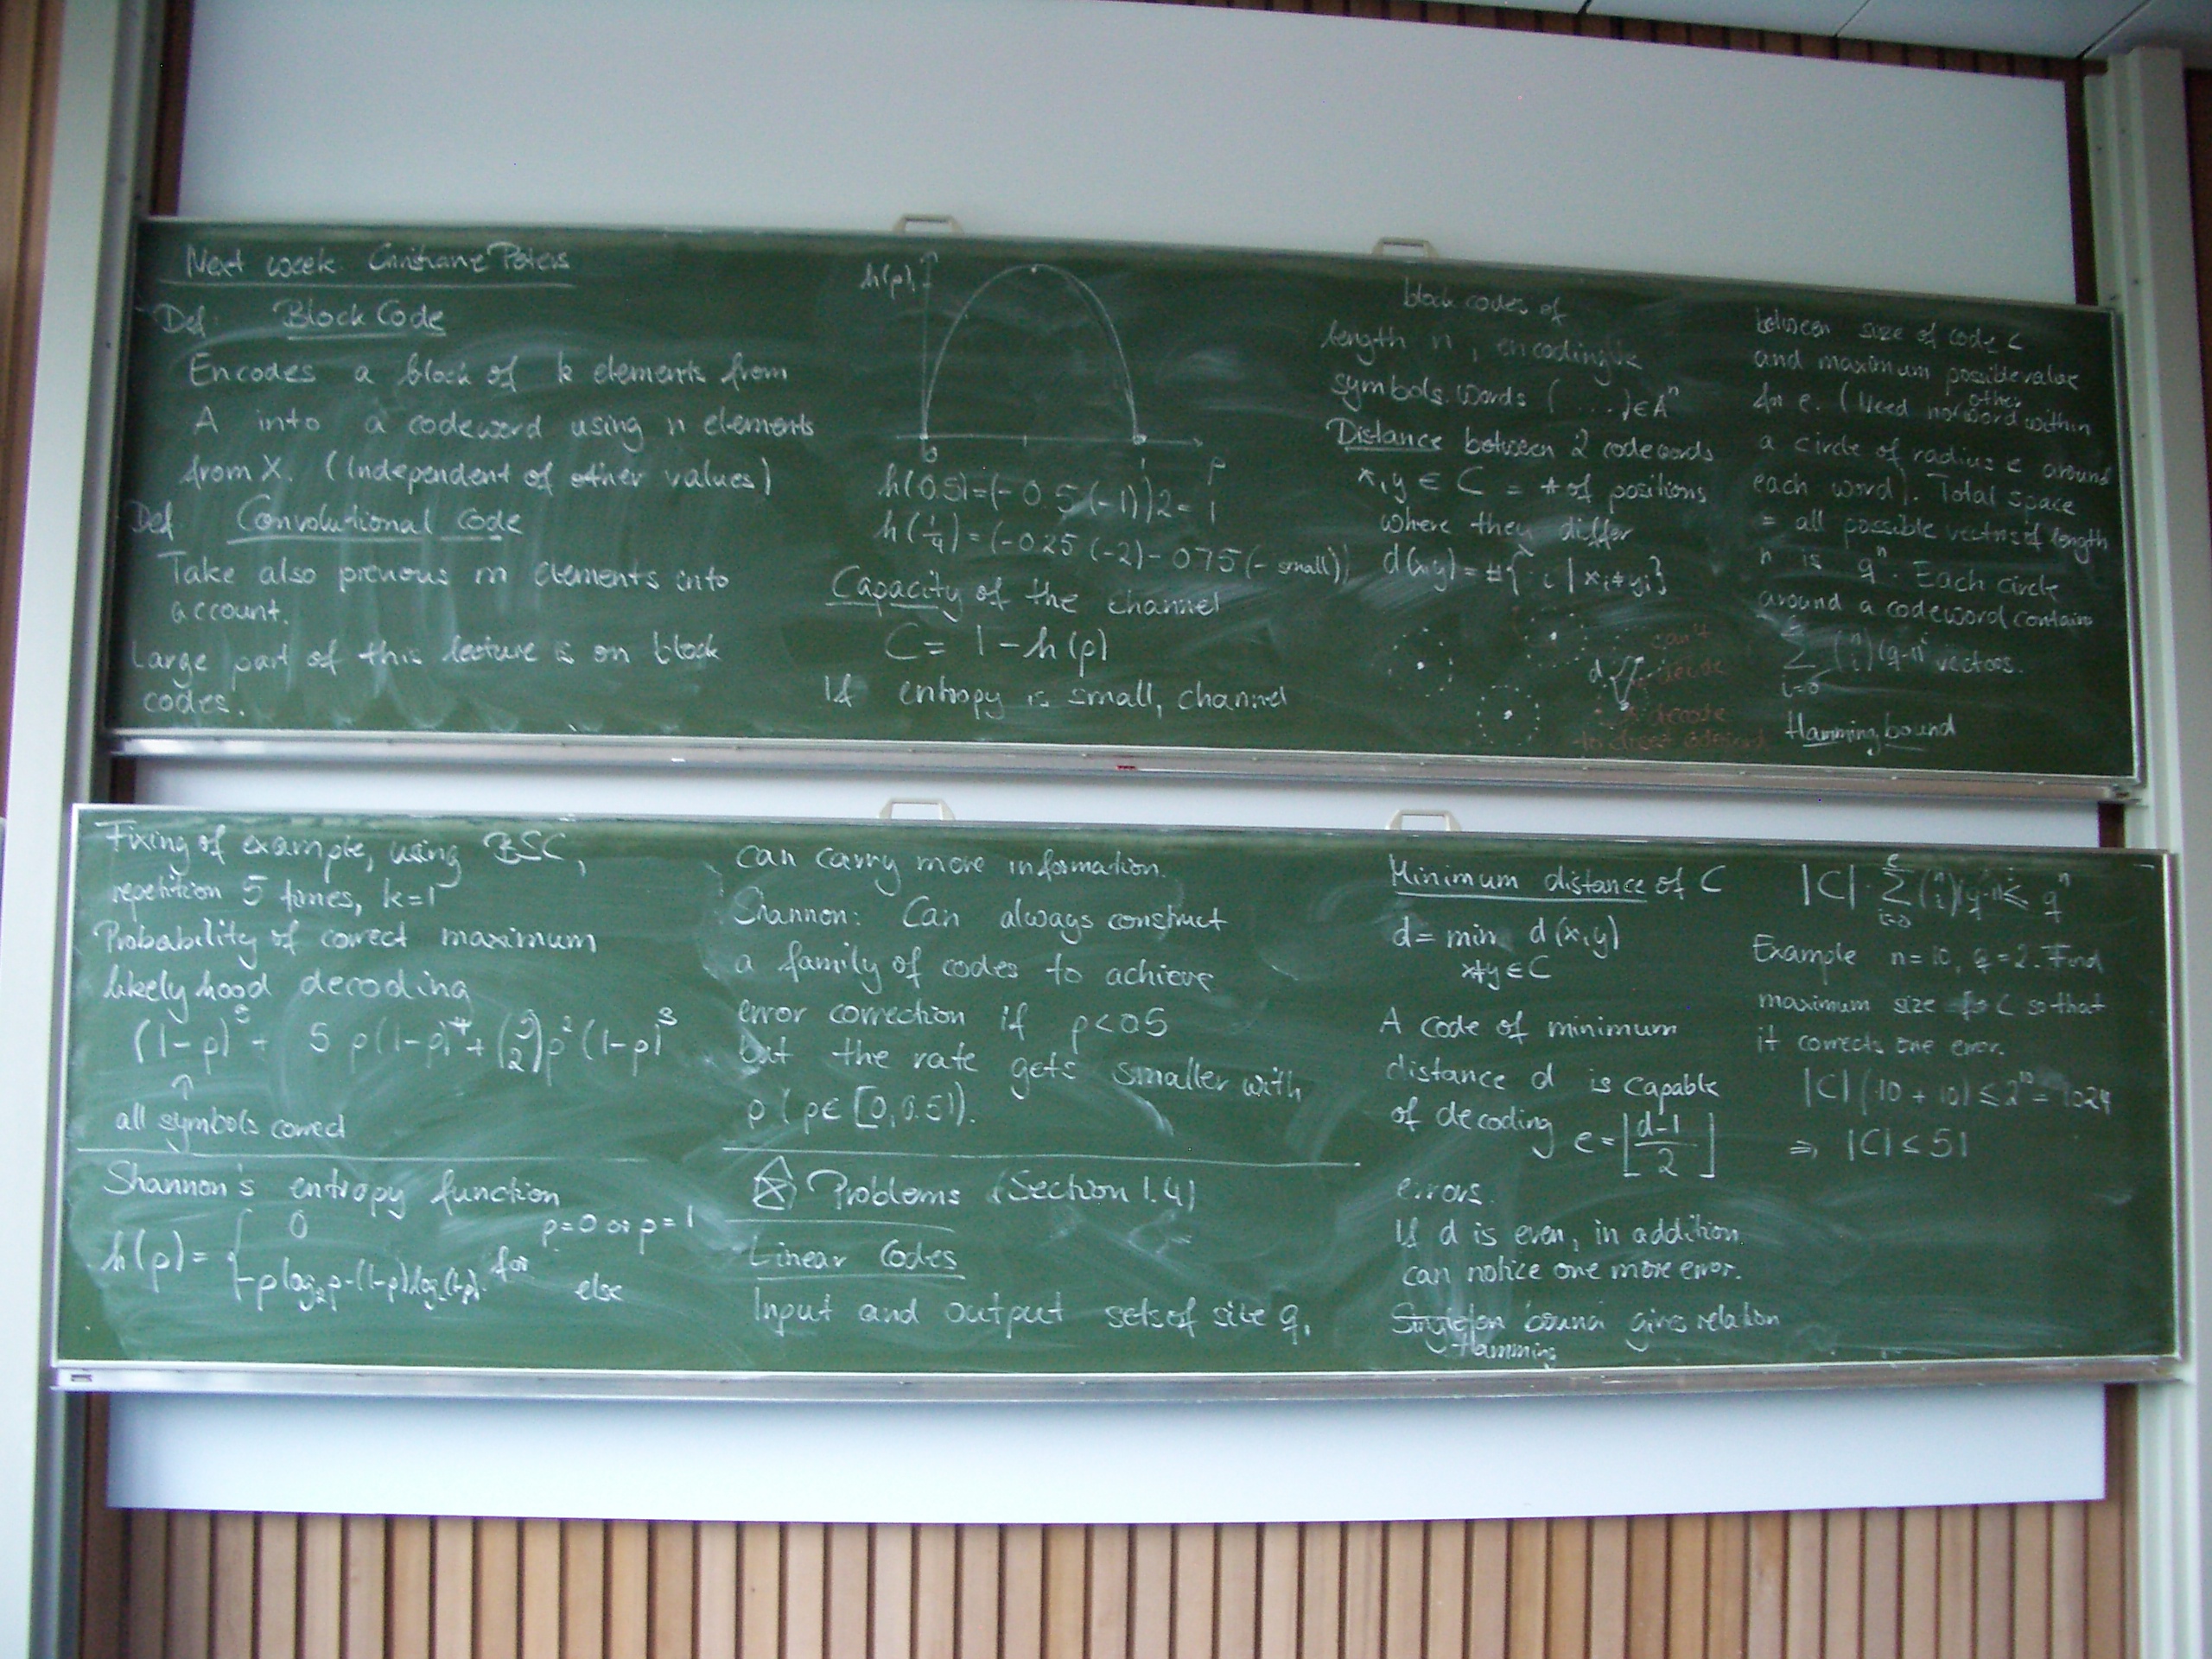 Next week Christiane Peters
Def: Block Code
Encodes a block of k elements from
A into a codeword using n elements
from X. (Independent of other values)
Def Convolutional code
Take also previous m elements into
account.
Large part of this lecture is on block
codes.
Fixing of example, using BSC,
repetition 5 times, k=1
Probability of correct maximum
likelyhood decoding
(1-p)^5 + 5 p(1-p)^4 + (5 2) p^2 (1-p)^3
↑
all symbols correct
Shannon's entropy function
h(p) = { 0 p=0 or p=1
-p log_2 p-(1-p) log_2(1-p). for else
h(p)
0 1 p
h(0.5)=(-0.5(-1))2= 1
h(1/4)=(-0.25(-2)-0.75(-small))
Capacity of the channel
C= 1-h(p)
If entropy is small, channel
can carry more information.
Shannon: Can always construct
a family of codes to achieve
error correction if p<0.5
but the rate gets smaller with
p (p∈[0,0.5)).
Problems (Section 1.4)
Linear Codes
Input and output sets of size q,
block codes of
length n, encoding k
symbols. Words (...)∈A^n
Distance between 2 codewords
x,y ∈ C = # of positions
where they differ
d(x,y) = #{i | x_i≠y_i}
can't
d decide
decode
to
Minimum distance of C
d= min d(x,y)
x≠y∈C
A code of minimum
distance d is capable
of decoding e=⌊(d-1)/2⌋
errors.
If d is even, in addition
can notice one more error.
Singleton bound gives relation
Hamming
between size of code C
and maximum possible value
for e. (Need no other word within
a circle of radius e around
each word). Total space
= all possible vectors of length
n is q^n. Each circle
around a codeword contains
e∑i=0 (n i)(q-1)^i vectors.
Hamming bound
|C|· e∑i=0 (n i)(q-1)^i ≤ q^n
Example n=10, q=2. Find
maximum size for C so that
it corrects one error.
|C|(10 + 10) ≤ 2^10 = 1024
⇒ |C| ≤ 51